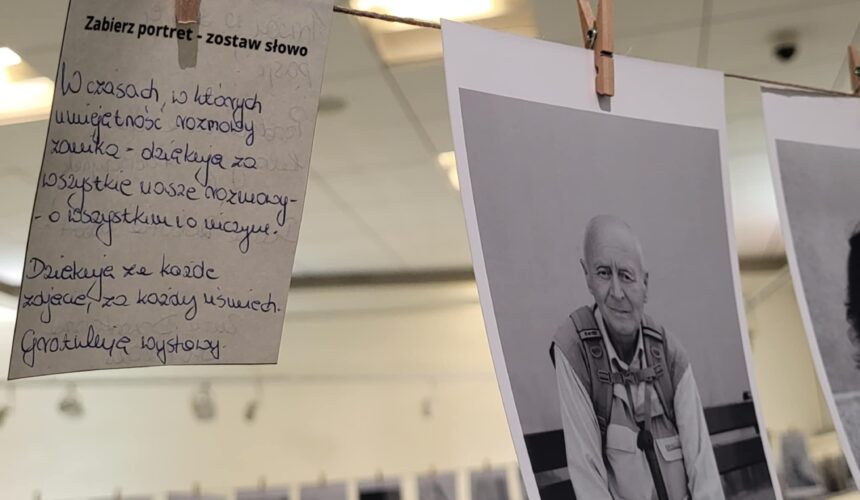 Zabierz portret - zostaw słowo
W czasach, w których
umiejętność rozmowy
zanika - dziękuję za
wszystkie nasze rozmowy -
- o wszystkim i o niczym.
Dziękuję za każde
zdjęcie, za każdy uśmiech.
Gratuluję wystawy.